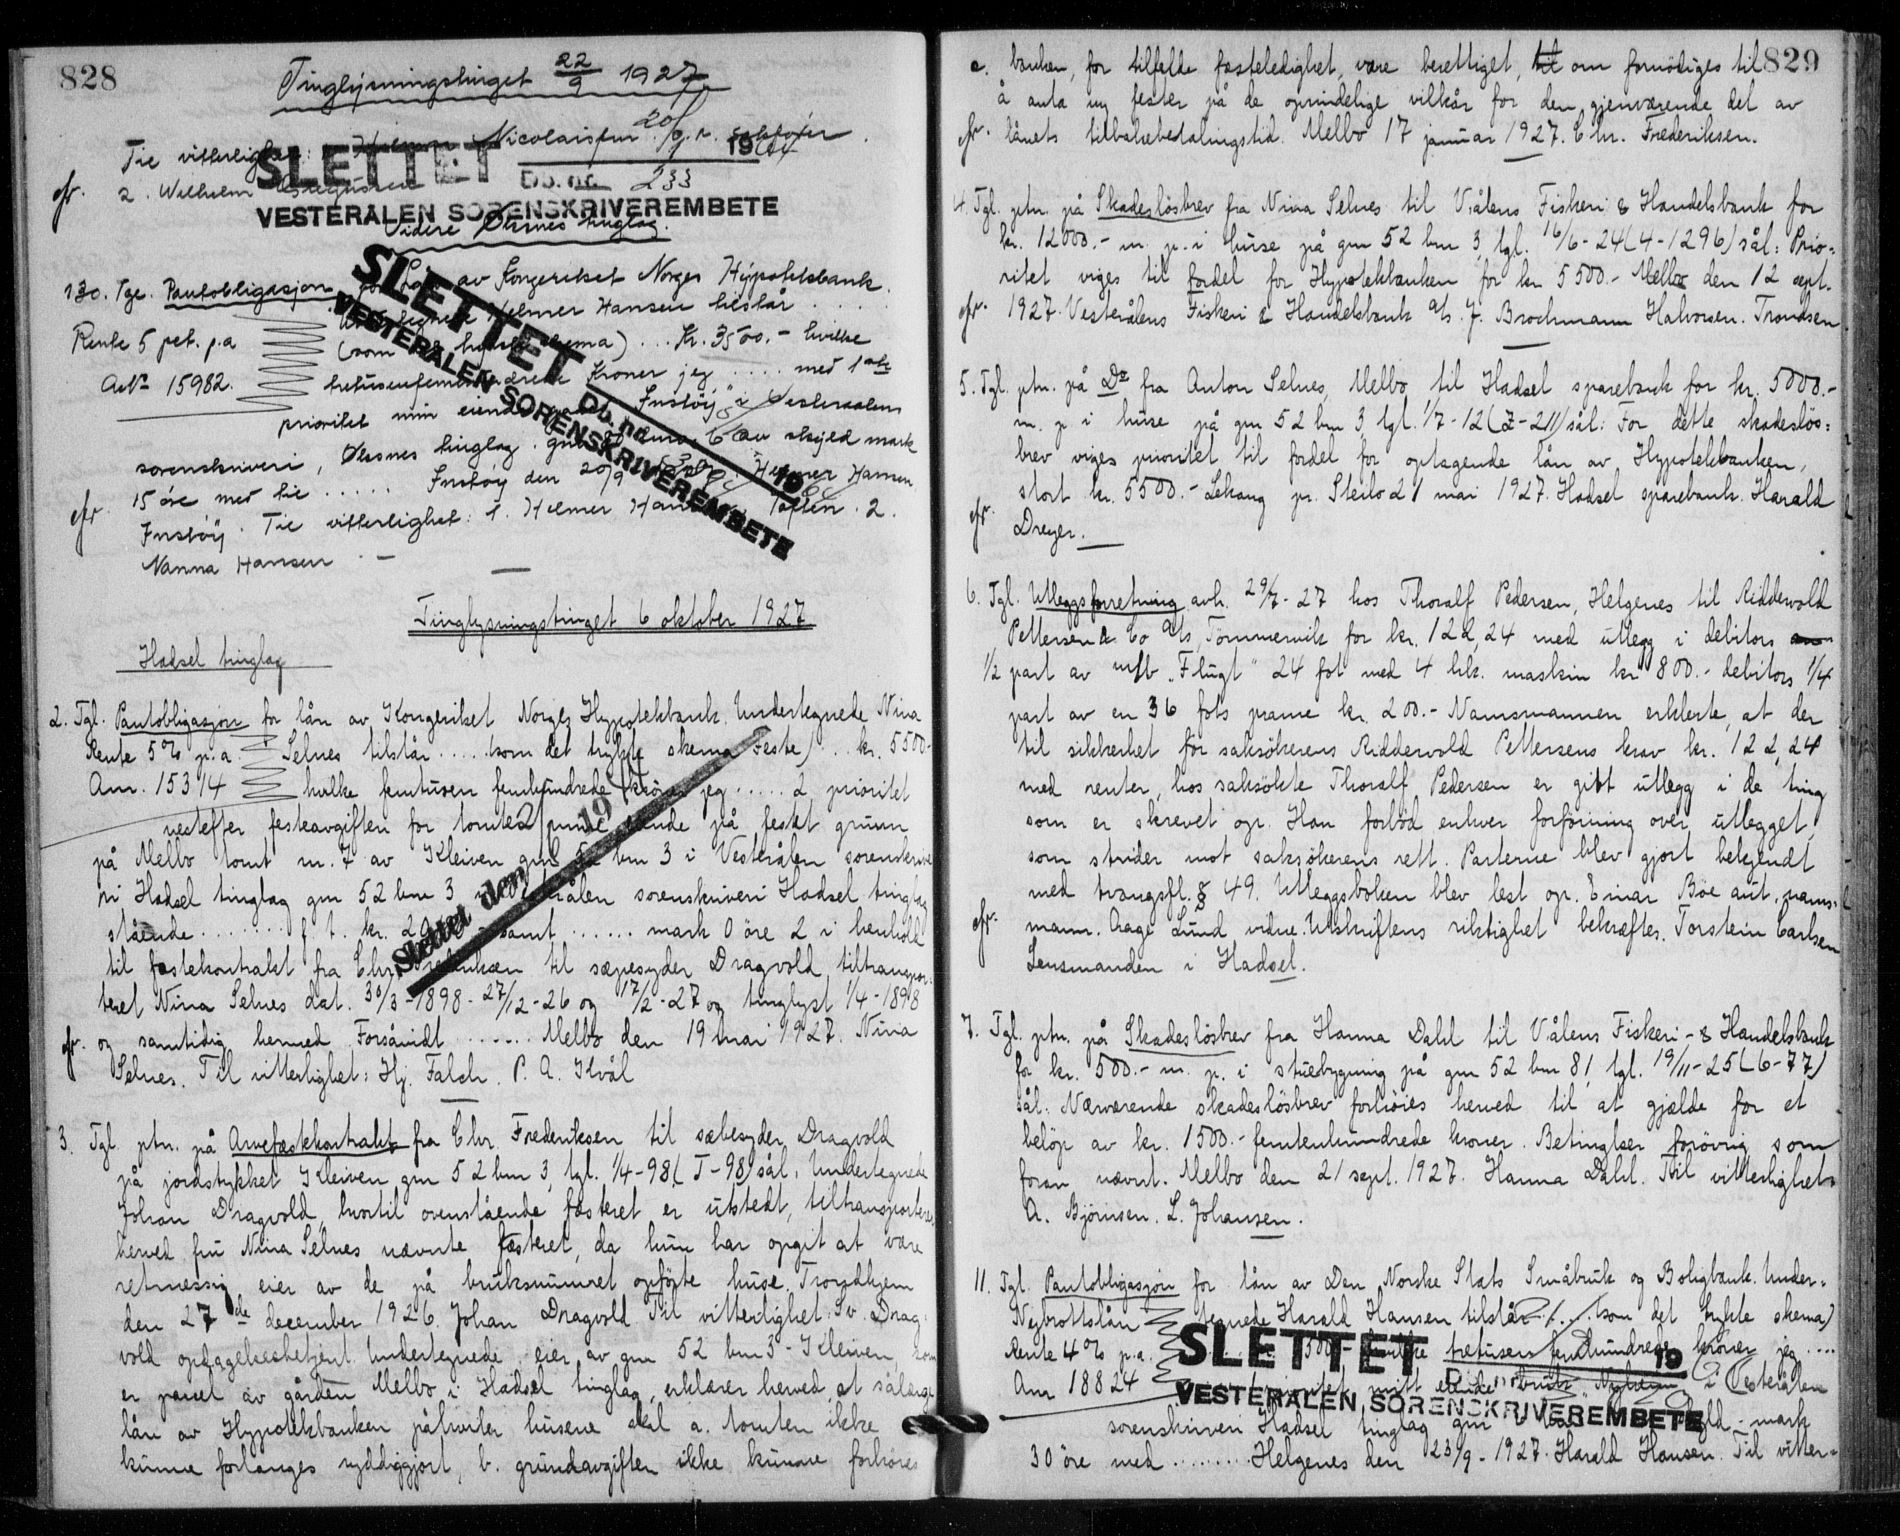 828
Tinglysningstinget 22/9 1927.
Til vitterlighet: Helmer Nicolaisen
20/9
SLETTET 19
Db. nr. 233
VESTERÅLEN SORENSKRIVEREMBETE
cfr. 2. Wilhelm
Videre Øksnes tinglag.
130. Tgl. Pantobligasjon for Lån av Kongeriket Norges Hypotekbank.
Helmer Hansen tilstår . . . .
Rente 5 pct. p.a (som skema) ... Kr. 3500.- hvilke
An№ 15982. Kroner jeg .... med 1ste
prioritet min eiendom "Instøy" i Vesteraalens
sorenskriveri, Øksnes tinglag. bnr. 6 av skyld mark
15 øre med tie ..... Instøy den 20/9 Helmer Hansen
cfr. Instøy. Til vitterlighet: 1. Helmer 2.
Nanna Hansen . —
SLETTET
Db. nr. 19
VESTERÅLEN SORENSKRIVEREMBETE
Tinglysningstinget 6 oktober 1927
Hadsel tinglag
2. Tgl. Pantobligasjon for lån av Kongeriket Norges Hypotekbank. Undertegnede Nina
Rente 5% p.a. Selnes tilstår ..... (som det trykte skema Feste) .. kr. 5500.-
Ann. 15314 hvilke femtusen femhundrede kroner jeg ..... 2 prioritet
nestefter festeavgiften for tomten mine hus på festet grunn
på Melbo tomt nr. 7 av Kleiven gnr 52 bnr 3 i Vesterålen sorenskrive
ri Hadsel tinglag gnr 52 bnr 3 i Vesterålen sorenskriveri Hadsel tinglag
stående ........ f. t. kr. samt ...... mark 0 öre 2 i henhold
til festekontrakt fra Chr. Frederiksen til sæpesyder Dragvold, tiltranspor-
tert Nina Selnes dat. 30/3-1898 - 27/12-26 og 17/2-27 og tinglyst 1/4-1898
cfr. og samtidig hermed. Forsåvidt ...... Melbo den 19 mai 1927. Nina
Selnes. Til vitterlighet: Hj. Falch. P. A. Kvål
Slettet den 19
3. Tgl ptn. på Arvefæstekontrakt fra Chr. Frederiksen til sæbesyder Dragvold
på jordstykket Kleiven gnr 52 bnr 3, tgl. 1/4-98 (T-98) sål: Undertegnede
Johan Dragvold, hvortil ovenstående fæsteret er utstedt, tiltransporterer
herved fru Nina Selnes nævnte fæsteret, da hun har opgit at være
retmessig eier av de på bruksnumret opførte huse. Trondhjem
den 27de december 1926. Johan Dragvold Til vitterlighet: Sv. Drag-
vold opsaggelsesbetjent. Undertegnede eier av gnr 52 bnr 3 - Kleiven, som
er parcel av gården Melbo i Hadsel tinglag, erklærer herved at sålænge
lån av Hypotekbanken påhviler husene skal a. tomten ikke
kunne forlanges ryddiggjort, b. grundavgiften ikke kunne forhöies
829
c. banken, for tilfelde fæsteledighet, være berettiget, til om fornödiges til
å anta ny fester på de oprindelige vilkår for den gjenværende del av
cfr. lånets tilbakebetalingstid. Melbo 17 januar 1927. Chr. Frederiksen.
4. Tgl. ptn. på Skadeslösbrev fra Nina Selnes til V.ålens Fiskeri & Handelsbank for
kr. 12000.- m. p. i huse på gnr 52 bnr 3, tgl. 16/6-24 (4-1296) sål: Prio-
ritet viges til fordel for Hypotekbanken for kr 5500.- Melbo den 12 sept.
cfr. 1927. Vesterålens Fiskeri & Handelsbank a/s. J. Brochmann Halvorsen. Trondsen
5. Tgl. ptn. på Do fra Anton Selnes, Melbo, til Hadsel sparebank for kr. 5000.-
m. p i huse på gnr 52 bnr 3 tgl. 1/7-12 (Z-211) sål: For dette skadeslös-
brev viges prioritet til fordel for optagende lån av Hypotekbanken,
stort kr. 5500.- Lekang pr. Steilo 21 mai 1927. Hadsel sparebank. Harald
cfr. Dreyer.
6. Tgl. Utleggsforretning avh. 29/7-27 hos Thoralf Pedersen, Helgenes til Riddervold
Pettersen & Co a/s, Tömmervik for kr. 122,24 med utlegg i debitors
1/2 part av m/b "Flugt" 24 fot med 4 hk. maskin kr 800.- debitors 1/4
part av en 36 fots prame kr. 200.- Namsmannen erklerte, at der
til sikkerhet for saksökerens Riddervold Pettersens krav kr. 122,24
med renter, hos saksökte Thoralf Pedersen er gitt utlegg i de ting
som er skrevet op. Han forböd enhver forföining over utlegget,
som strider mot saksökerens rett. Parterne blev gjort bekjendt
med tvangsfl. § 49. Utleggsboken blev lest op. Einar Böe aut. nams-
cfr. mann. Aage Lund vidne. Utskriftens riktighet bekræftes. Torstein Carlsen
Lensmanden i Hadsel.
7. Tgl. ptn. på Skadeslösbrev fra Hanna Dahl til V.ålens Fiskeri- & Handelsbank
for kr. 500.- m. p. i stuebygning på gnr 52 bnr 81, tgl. 19/11-25 (6-77)
sål: Nærværende skadeslösbrev forhöies herved til at gjælde for et
belöp av kr. 1500.- femtenhundrede kroner. Betingelser forövrig som
foran nævnt. Melbo den 21 sept. 1927. Hanna Dahl. Til vitterlighet:
A. Bjørnsen. L. Johansen.
11. Tgl. Pantobligasjon for lån av Den Norske Stats Småbruk og Boligbank. Under-
Nybrottslån tegnede Harald Hansen tilstår .... som det trykte skema)
Rente 4% p.a. 3500.- hvilke tretusen femhundrede kroner jeg ....
Ann 18824 prioritet mitt eiende bruk "Nyheim" i Vesterålen
sorenskriveri Hadsel tinglag gnr skyld - mark
30 öre med ........ Helgenes den 23/9-1927. Harald Hansen. Til vitter-
SLETTET 19
Db. nr.
VESTERÅLEN SORENSKRIVEREMBETE